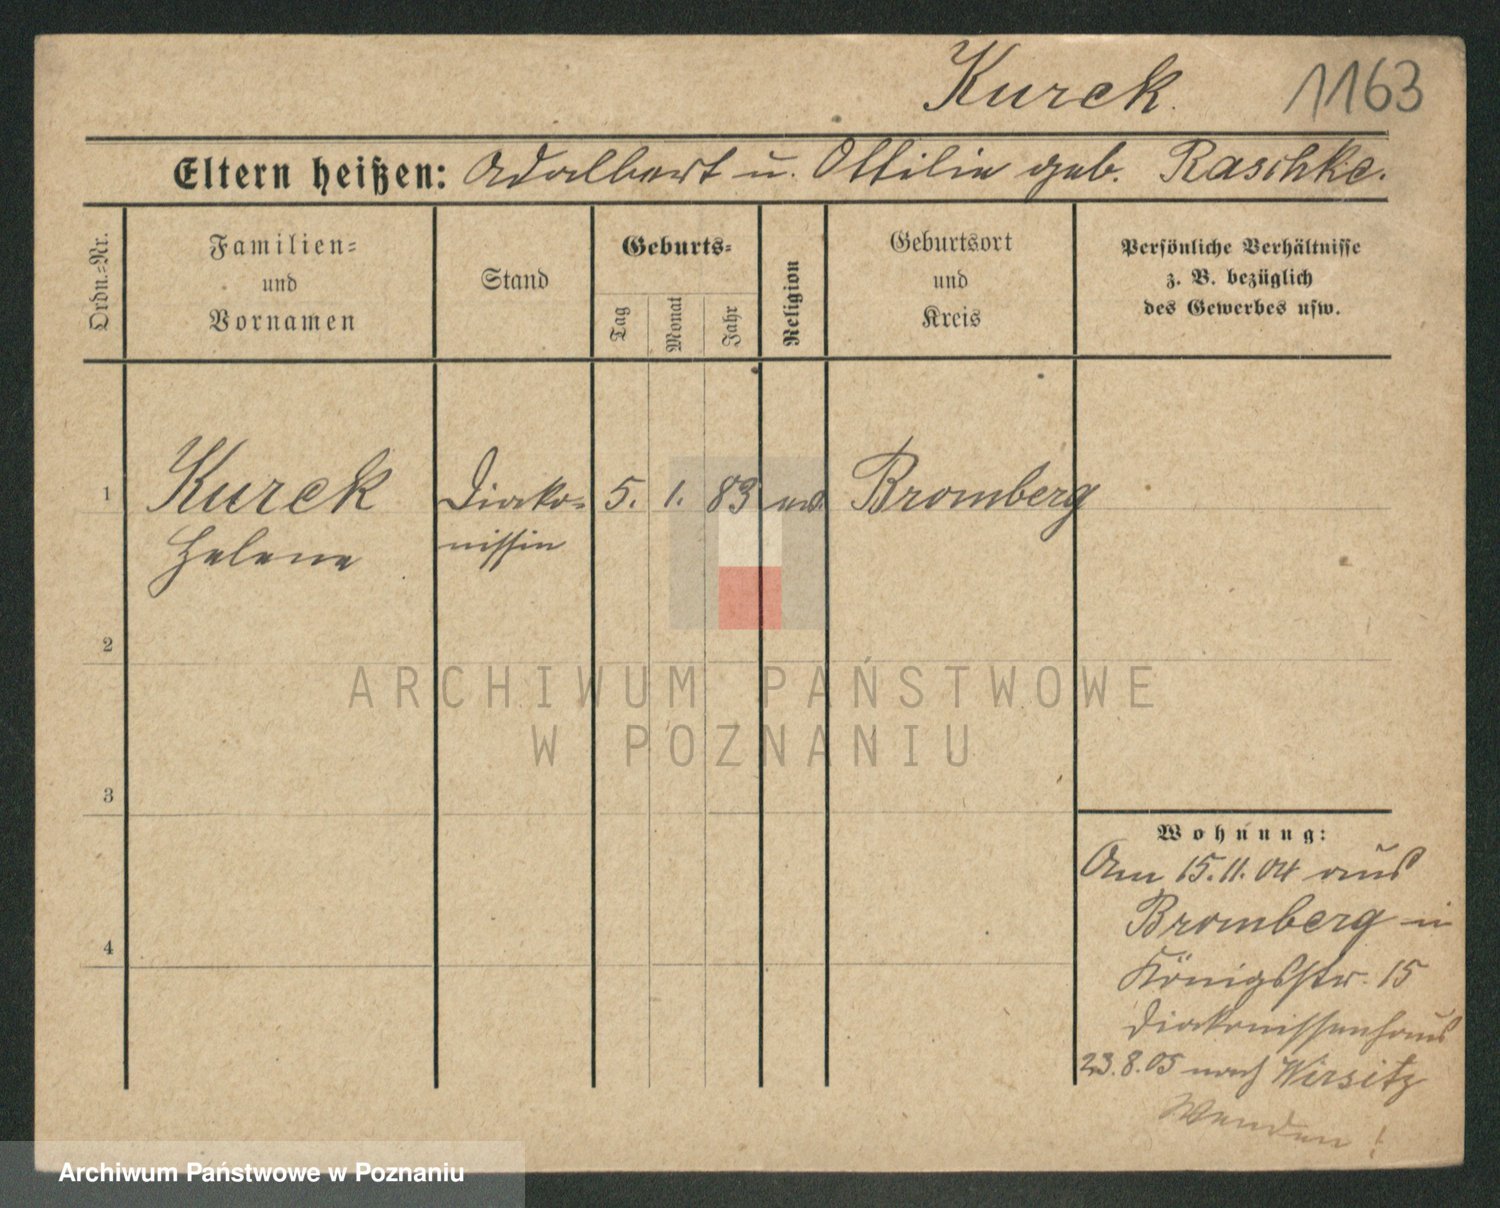 Kurek. 1163
Eltern heißen: Adalbert u. Ottilie geb. Raschke.
Ordn.=Nr.
Familien=
und
Vornamen
Stand
Geburts=
Tag
Monat
Jahr
Religion
Geburtsort
und
Kreis
Persönliche Verhältnisse
z. B. bezüglich
des Gewerbes usw.
1 Kurek Diako= 5. 1. 83 Bromberg
Helene nissin
2
3
4
Wohnung:
Am 15.11.04 aus
Bromberg in
Königsstr. 15
Diakonissenhaus
23.8.05 nach Wirsitz
Wenden!
ARCHIWUM PAŃSTWOWE
W POZNANIU
Archiwum Państwowe w Poznaniu